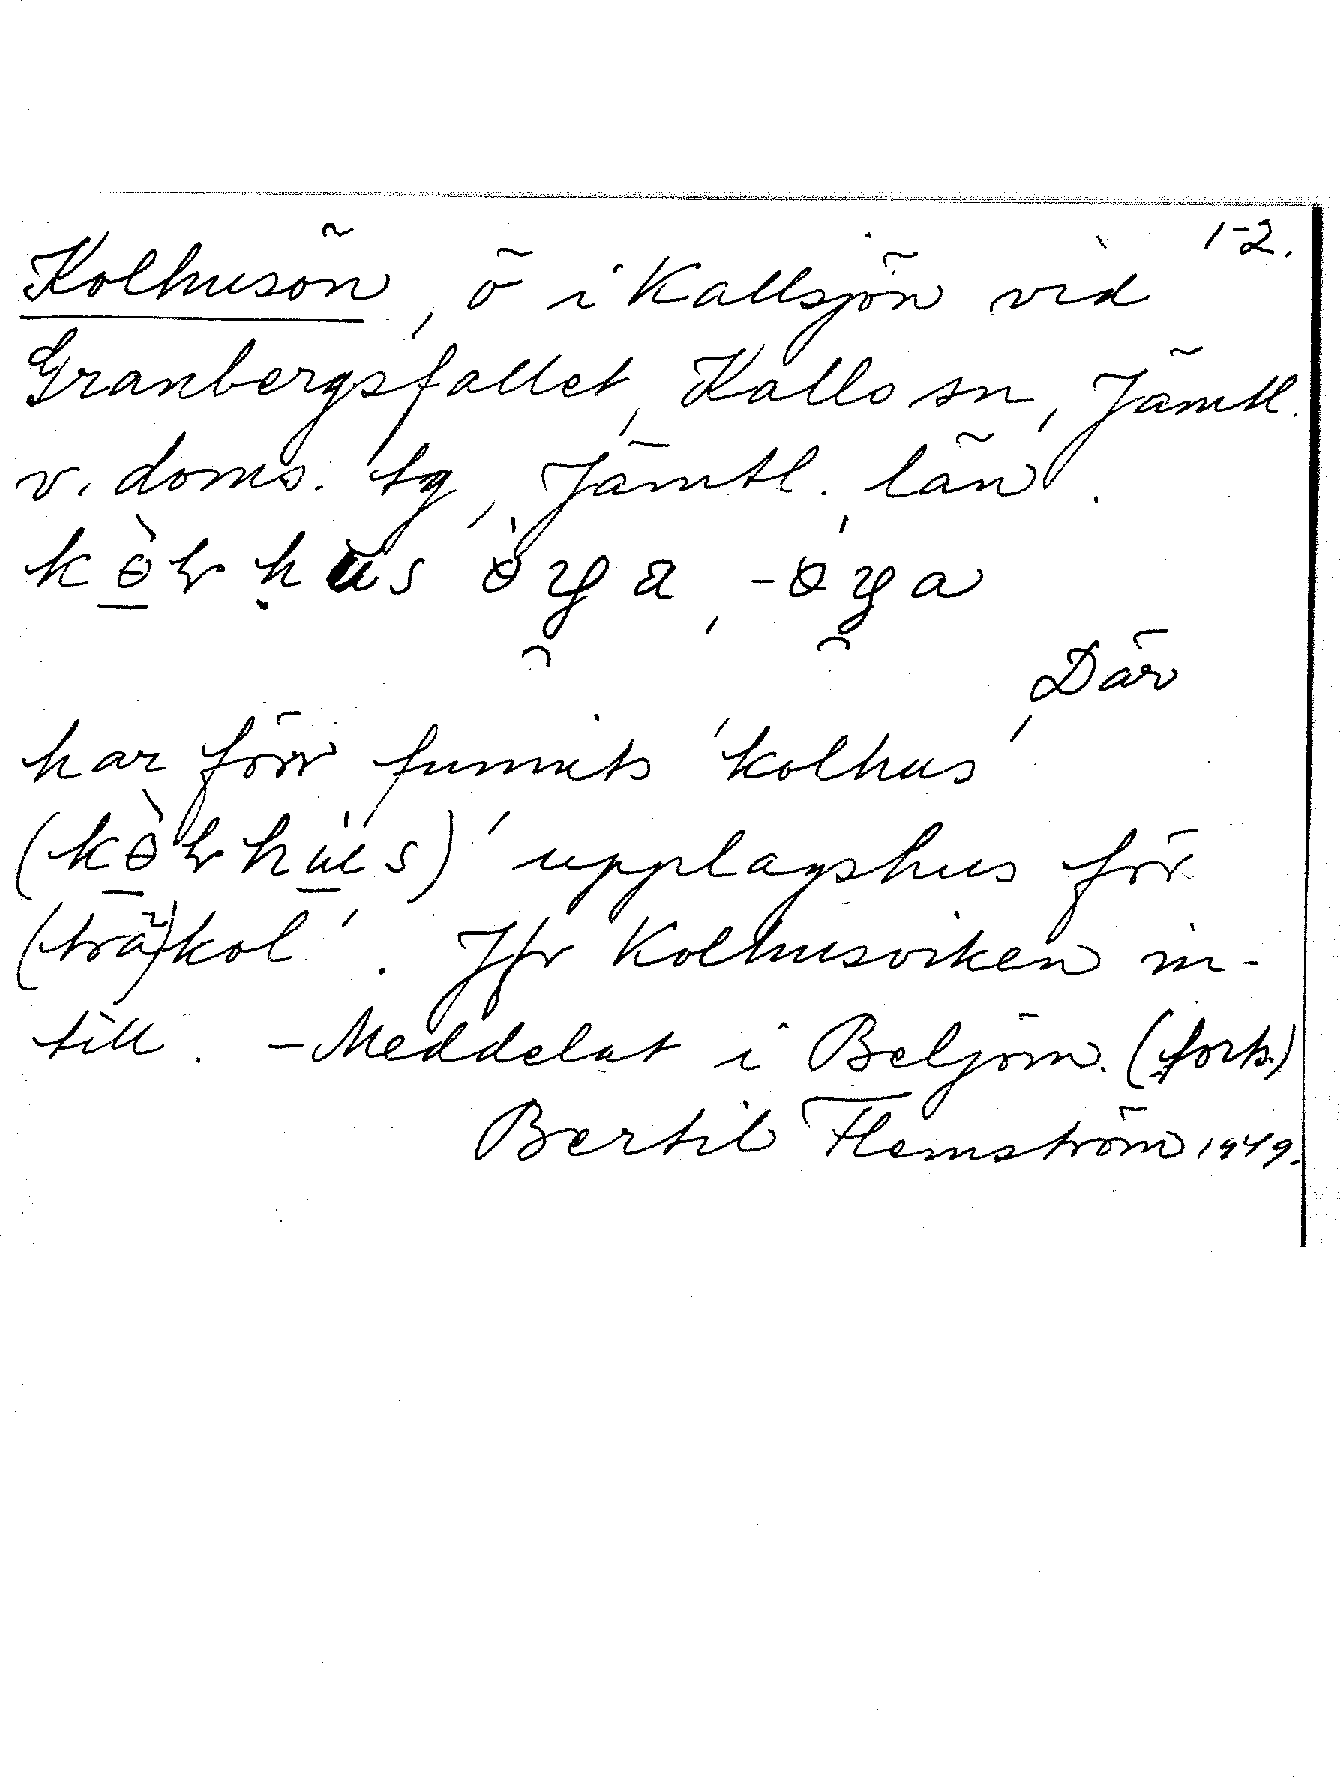 1-2.
Kolhusön, ö i Kallsjön vid
Granbergsfallet, Kalls sn, Jämtl.
v. doms. tg, Jämtl. län.
Där
har förr funnits 'kolhus'
'upplagshus för
(trä)kol'. Jfr Kolhusviken in-
till. – Meddelat i Beljöm. (forts.)
Bertil Flemström 1949.